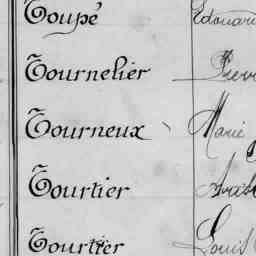 Toupé Edouard
Tournelier Pierr
Tourneux Marie
Tourtier
Tourtier Louis